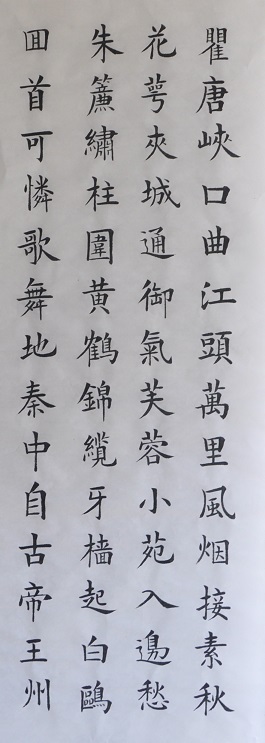 瞿唐峽口曲江頭萬里風烟接素秋
花萼夾城通御氣芙蓉小苑入邊愁
朱簾繡柱圍黄鶴錦纜牙檣起白鷗
囬首可憐歌舞地秦中自古帝王州